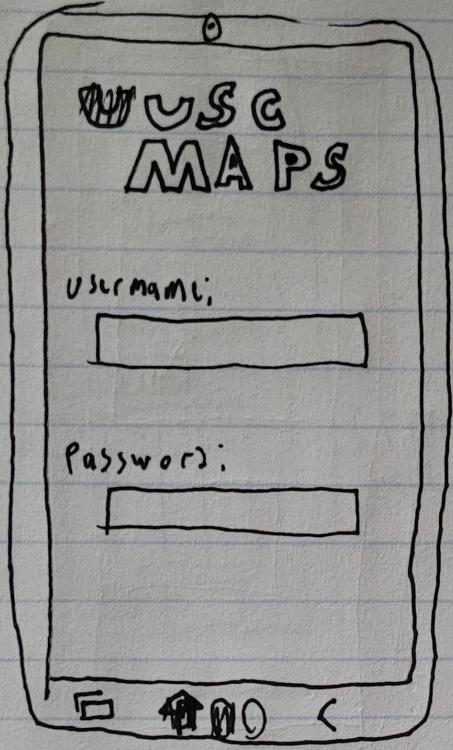 USC
MAPS
username:
Password: